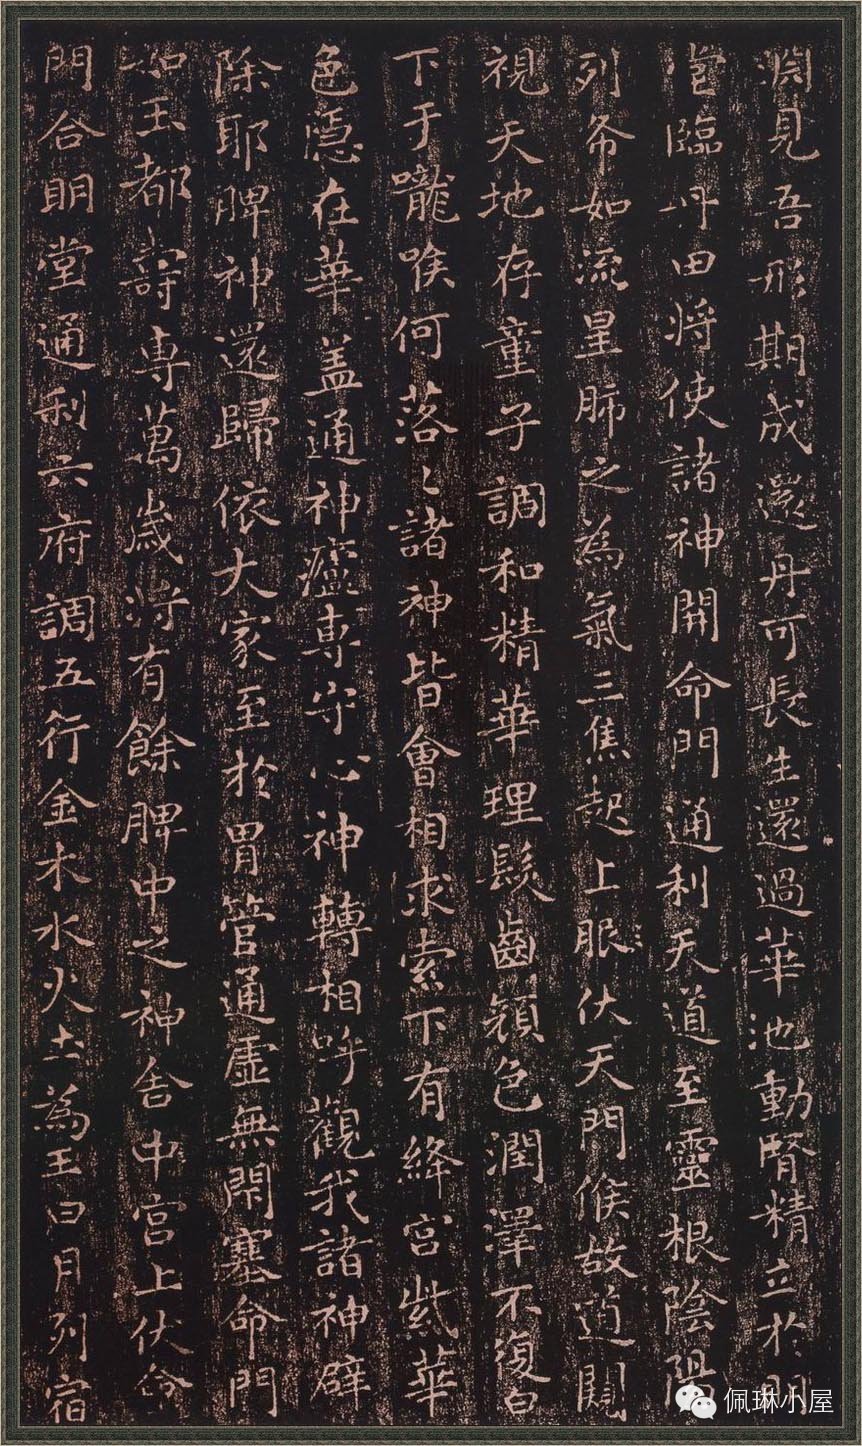 淵見吾形期成還丹可長生還過華池動腎精立於明
堂臨丹田將使諸神開命門通利天道至靈根陰陽
列布如流星肺之為氣三焦起上服伏天門候故道闚
視天地存童子調和精華理髮齒顏色潤澤不復白
下于嚨喉何落〻諸神皆會相求索下有絳宮紫華
色隱在華盖通神廬專守心神轉相呼觀我諸神辟
除耶脾神還歸依大家至於胃管通虛無閇塞命門
如玉都壽專萬歲將有餘脾中之神舍中宮上伏命
門合明堂通利六府調五行金木水火土為王日月列宿
佩琳小屋